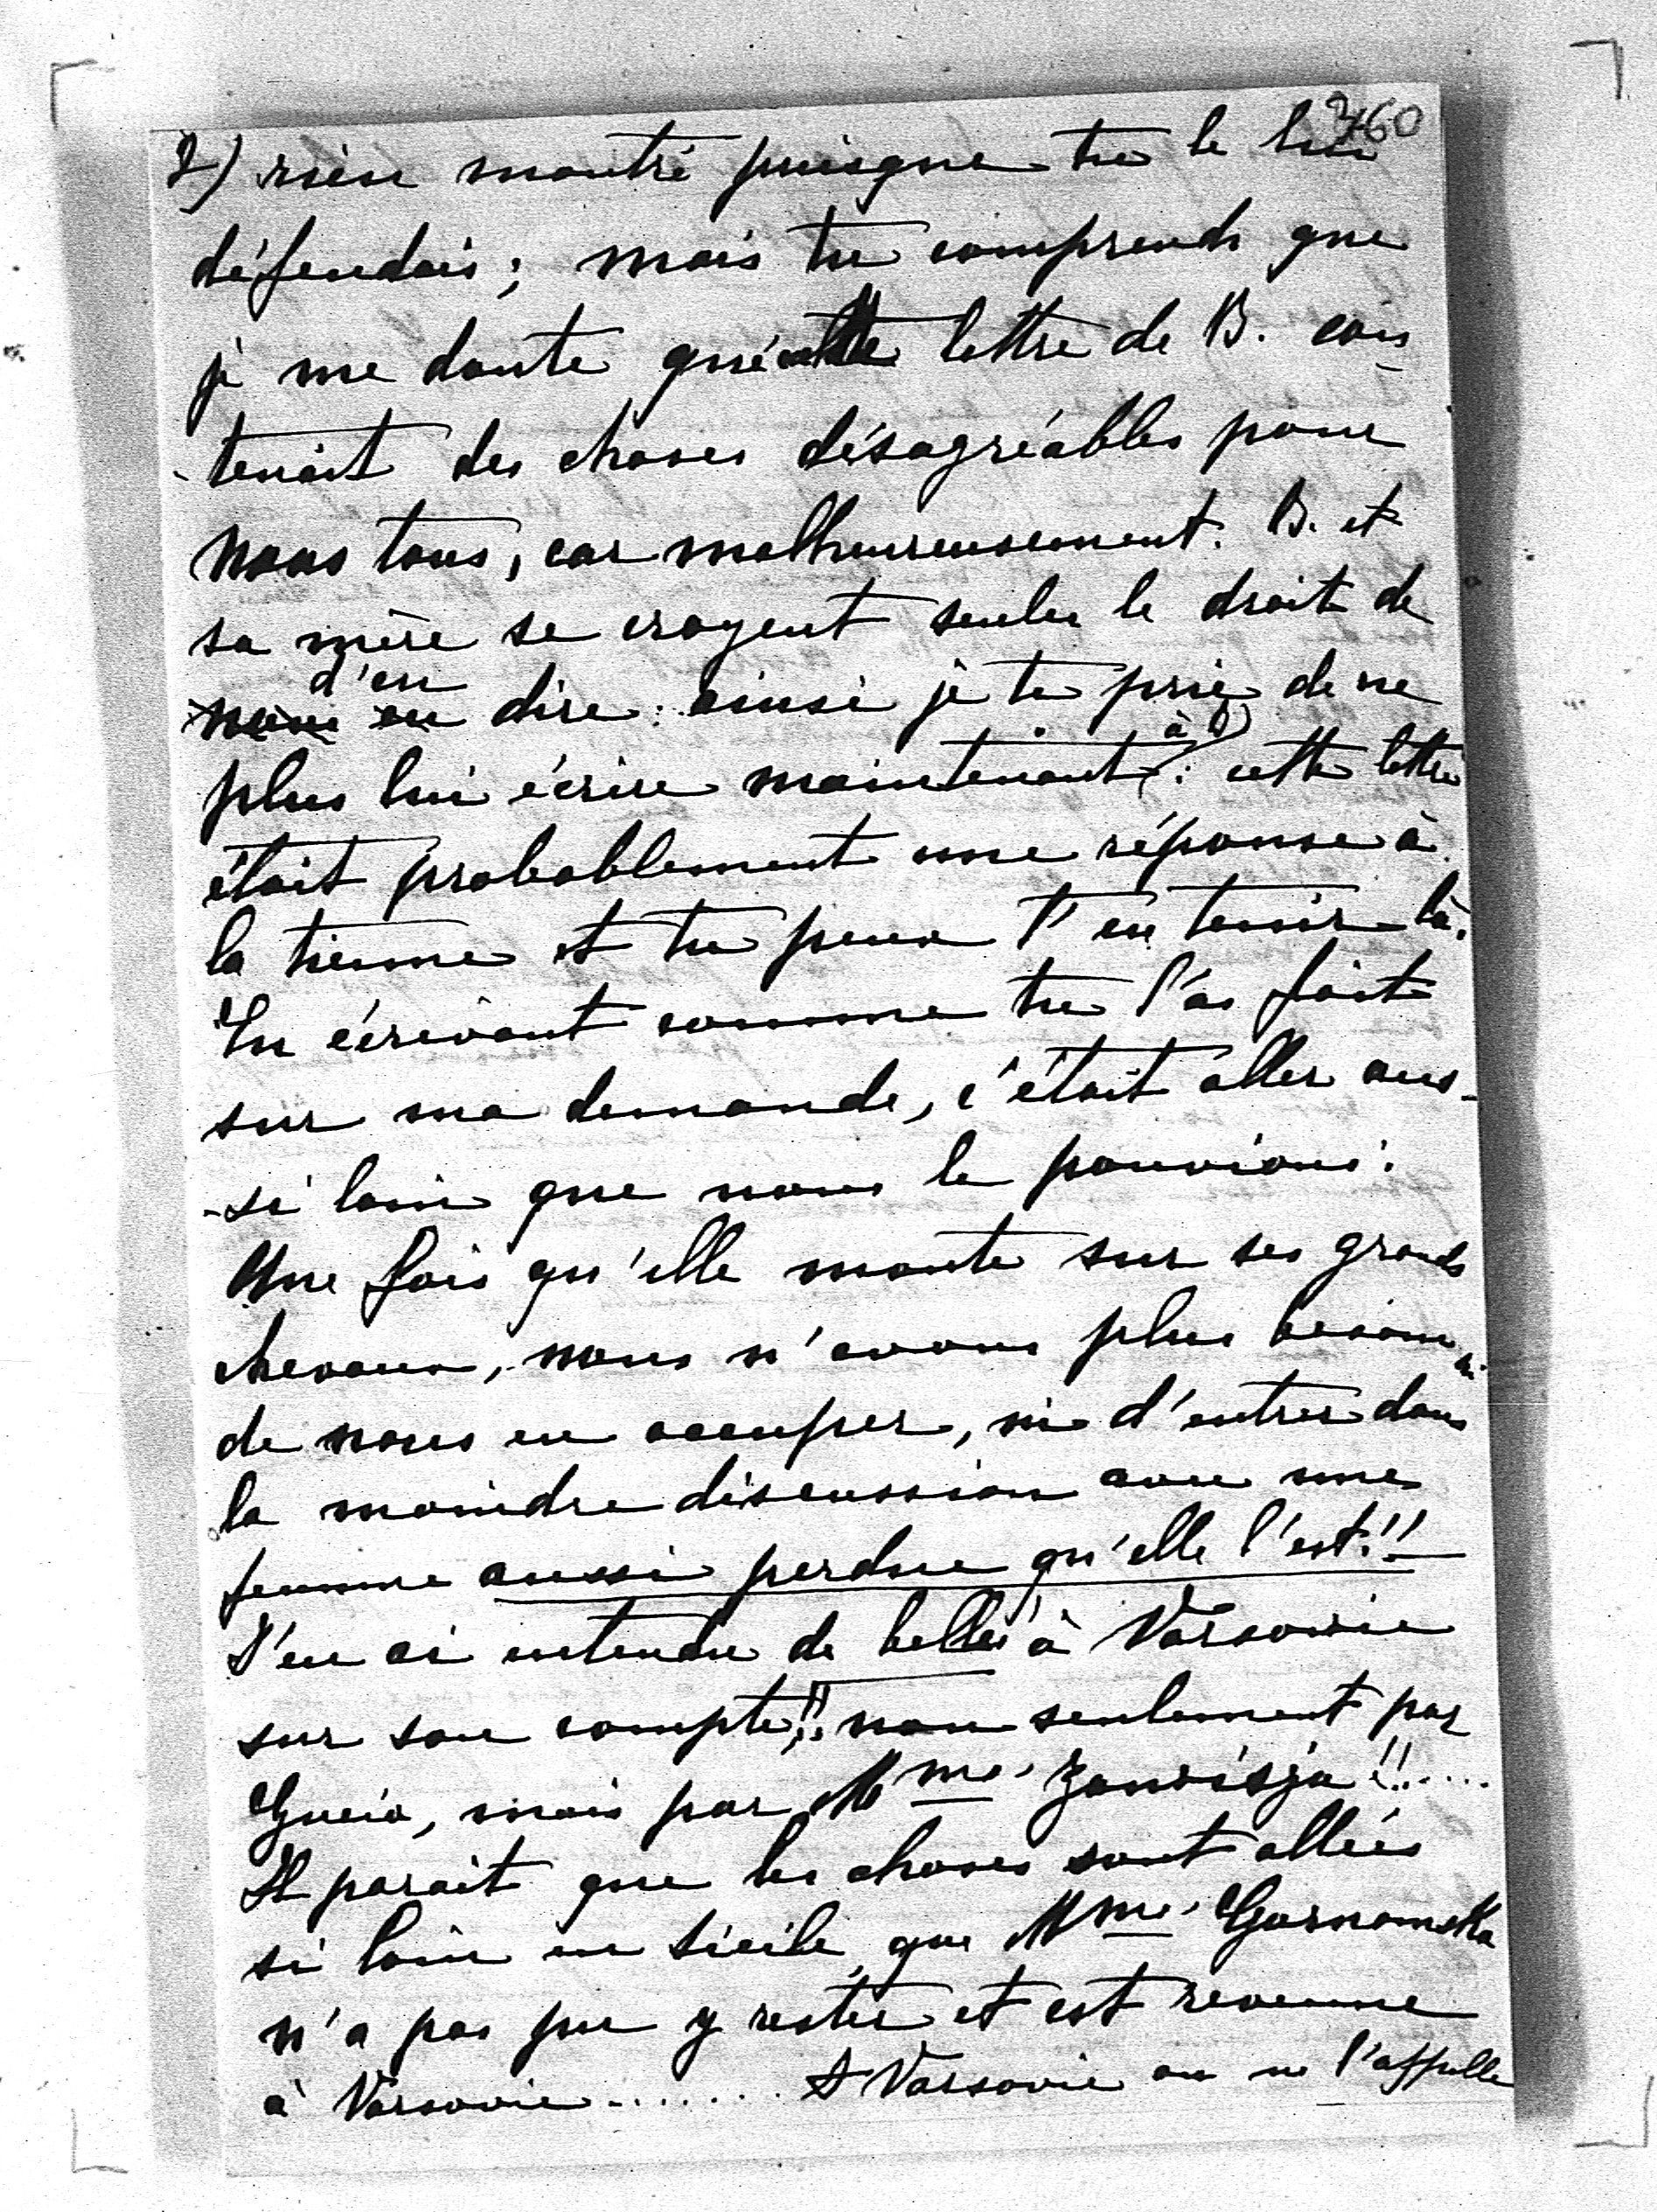 360
2) rien montré puisque tu le lui
défendais; mais tu comprends que
je me doute que cette lettre de B. con-
-tenait des choses désagréables pour
nous tous, car malheureusement B. et
sa mère se croyent seules le droit de
d'en
nous en dire: ainsi je te prie de ne
à B
plus lui écrire maintenant: cette lettre
était probablement une réponse à
la tienne et tu peux t'en tenir là.
En écrivant comme tu l'as fait
sur ma demande, c'était aller aus-
-si loin que nous le pouvions.
Une fois qu'elle monte sur ses grands
chevaux, nous n'avons plus besoin ni
de nous en occuper, ni d'entrer dans
la moindre discussion avec une
femme aussi perdue qu'elle l'est!!
J'en ai entendu de belles à Varsovie
sur son compte!! non seulement par
mais par Mme Zawisja!!.....
Il parait que les choses sont allées
si loin en Sicile, que Mme
n'a pas pu y rester et est revenue
à Varsovie....... A Varsovie on ne l'appelle